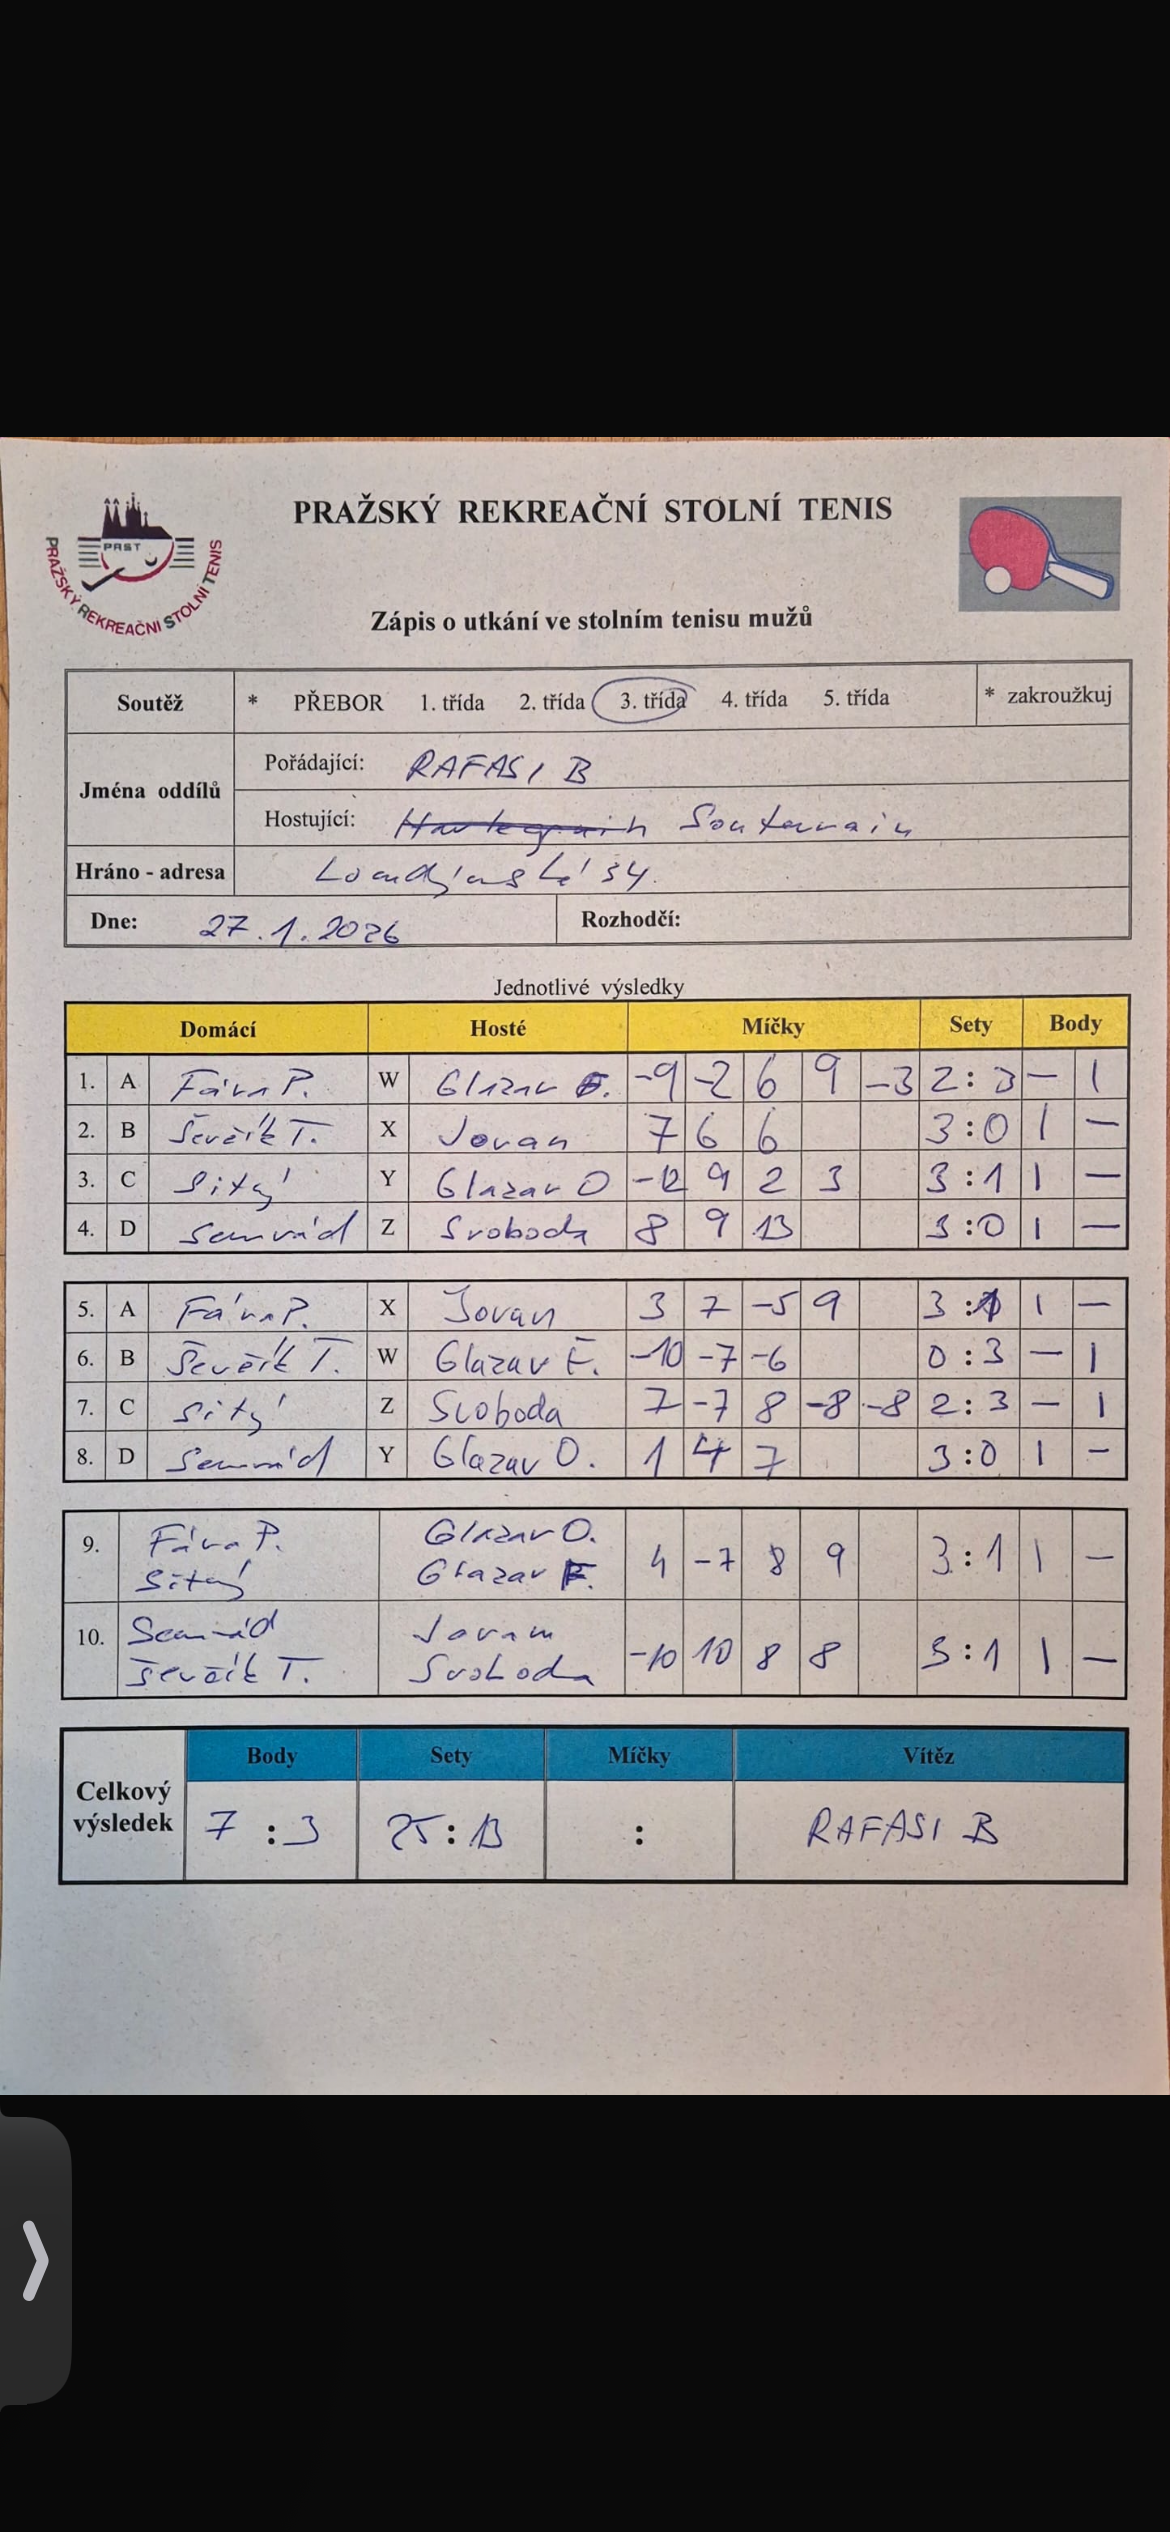 PRAŽSKÝ REKREAČNÍ STOLNÍ TENIS
PRST
PRAŽSKÝ REKREAČNÍ STOLNÍ TENIS
Zápis o utkání ve stolním tenisu mužů
Soutěž * PŘEBOR 1. třída 2. třída 3. třída 4. třída 5. třída * zakroužkuj
Jména oddílů
Pořádající: RAFASI B
Hostující: Souterrain
Hráno - adresa Londýnská 34.
Dne: 27.1.2026 Rozhodčí:
Jednotlivé výsledky
Domácí Hosté Míčky Sety Body
1. A Fára P. W Glazar E. -9 -2 6 9 -3 2:3 — 1
2. B Ševčík T. X Jovan 7 6 6 3:0 1 —
3. C Sitý Y Glazar O -12 9 2 3 3:1 1 —
4. D Semrád Z Svoboda 8 9 13 3:0 1 —
5. A Fára P. X Jovan 3 7 -5 9 3:1 1 —
6. B Ševčík T. W Glazar E. -10 -7 -6 0:3 — 1
7. C Sitý Z Svoboda 7 -7 8 -8 -8 2:3 — 1
8. D Semrád Y Glazar O. 1 4 7 3:0 1 —
9. Fára P. Glazar O. 4 -7 8 9 3:1 1 —
Sitý Glazar E.
10. Semrád Jovan -10 10 8 8 3:1 1 —
Ševčík T. Svoboda
Celkový výsledek
Body Sety Míčky Vítěz
7 : 3 25 : 13 : RAFASI B